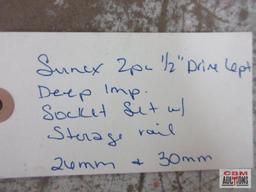 Sunex 2pc 1/2" Drive 6pt
Deep Imp.
Socket Set w/
Storage rail
26mm + 30mm
CBM
AUCTIONS